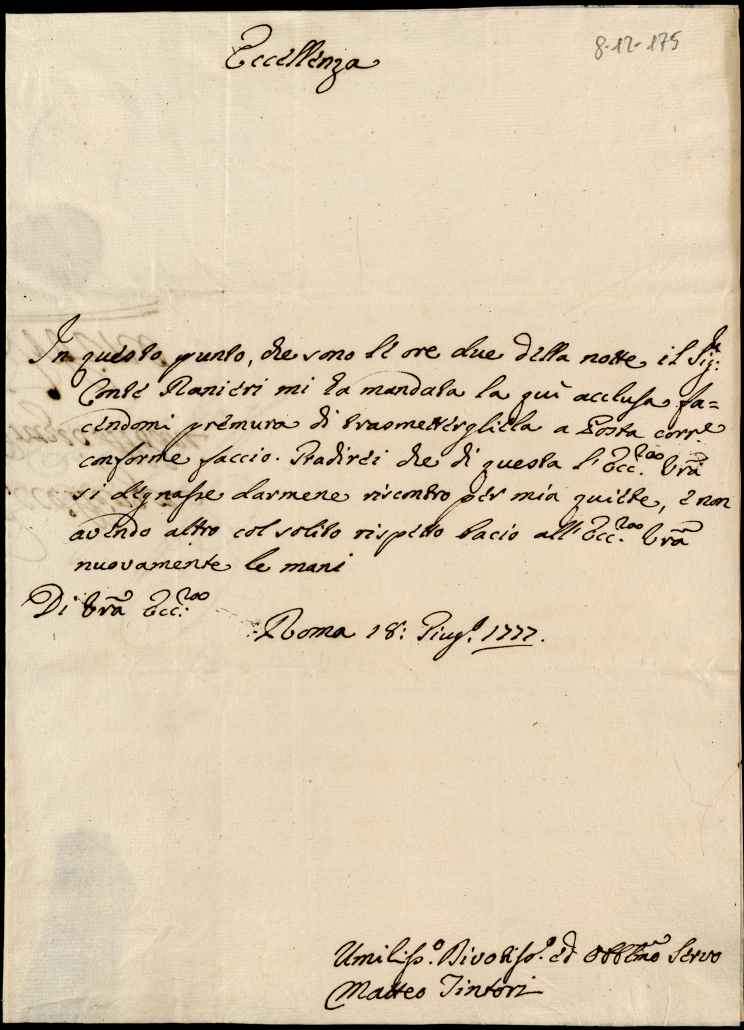 8-12-175
Eccellenza
In questo punto, che sono le ore due della notte il Sig.re
Conte Ranieri mi ha mandata la quì acclusa fa=
cendomi premura di trasmettergliela a Posta corr.e
conforme faccio. Gradirei che di questa l'Ecc.za Vrã
si degnasse darmene riscontro per mia quiete, e non
avendo altro col solito rispetto bacio all'Ecc.za Vrã
nuovamente le mani
Di Vrã Ecc.za
Roma 18: Giug.o 1777.
Umiliss.o Divotiss.o ed Obblmõ Servo
Matteo Tintori